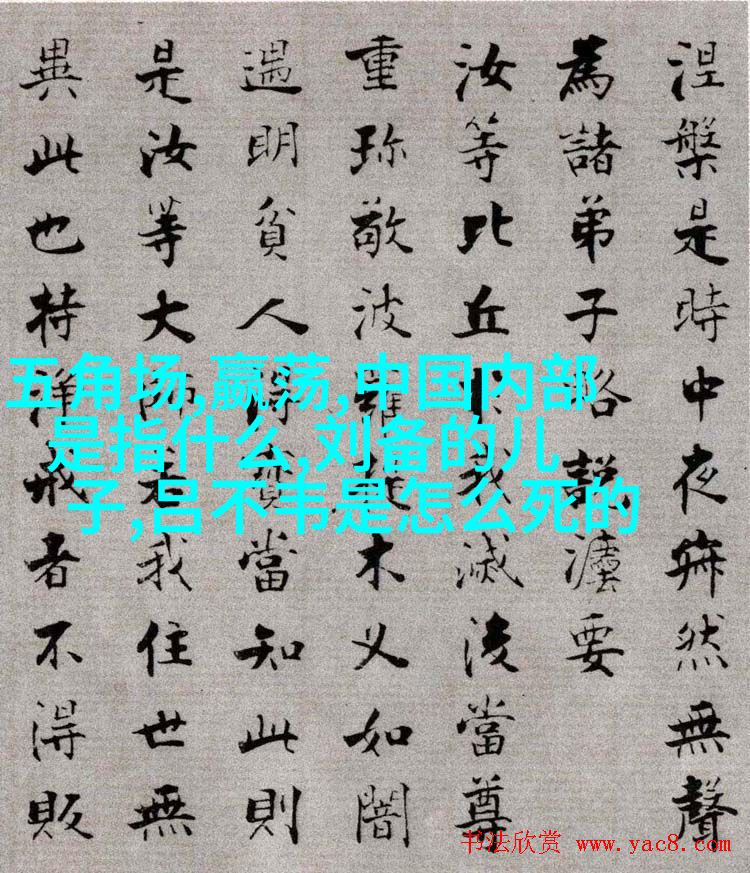 涅槃是時中夜寂然無聲
為諸弟子略說灋要
汝等比丘我滅後當尊
重珍敬波羅提木叉如闇
遇明貧人得寶當知此則
是汝等大師若我住世無
異此也持淨戒者不得販
五角场,嬴荡,中国内部
是指什么,刘备的儿
子,吕不韦是怎么死的
书法欣赏 www.yac8.com